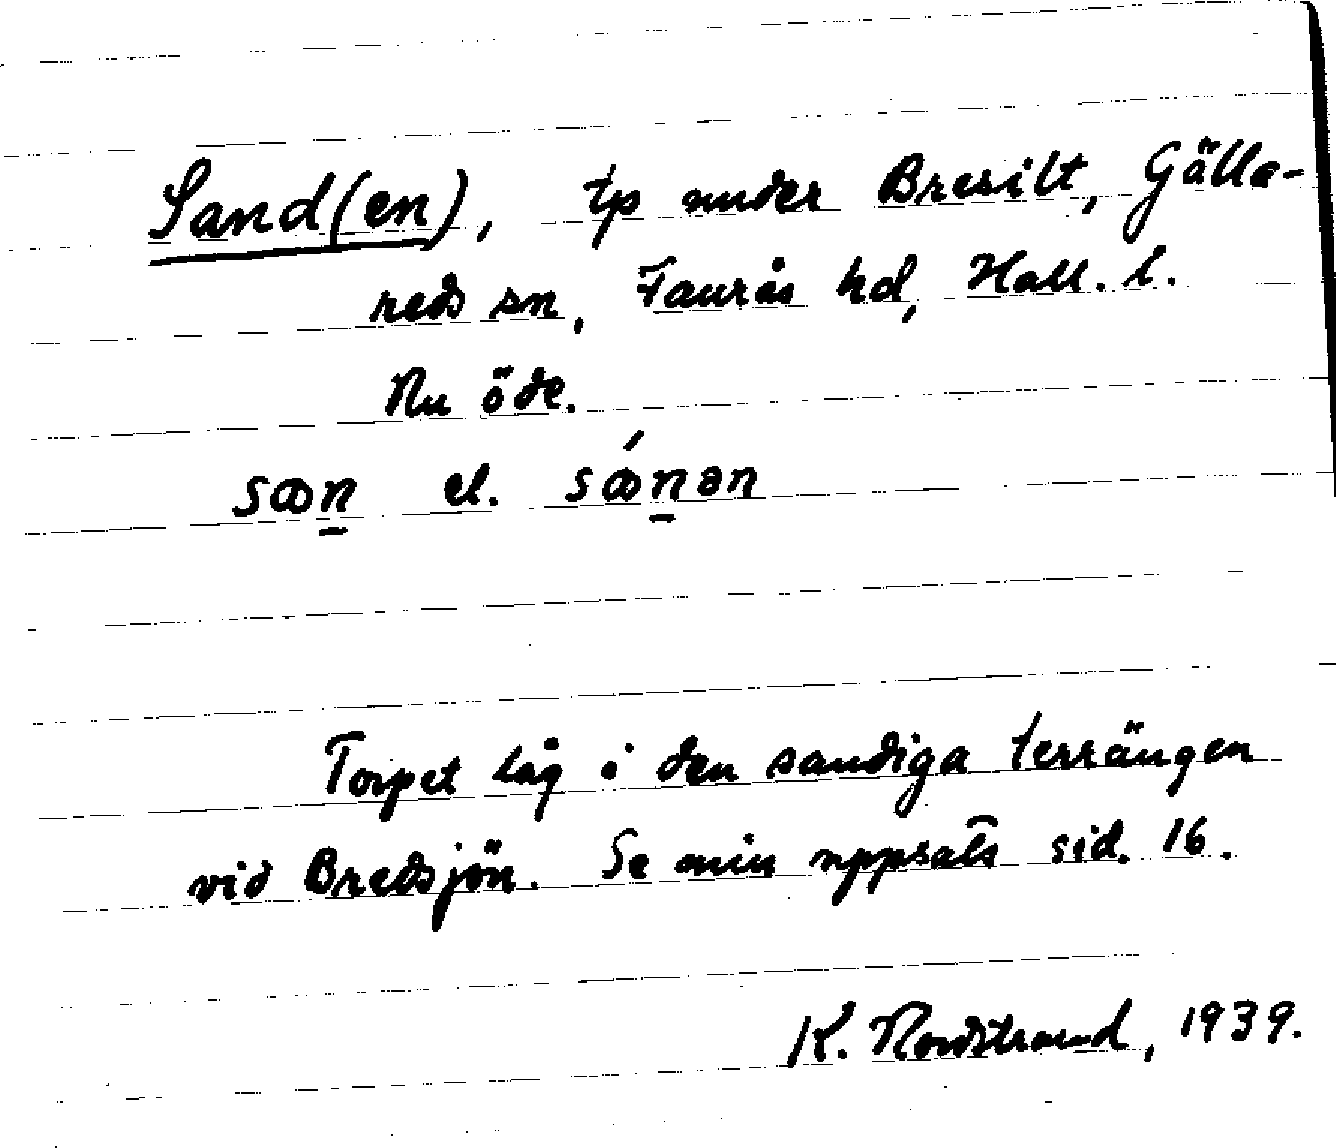 Sand(en), tp under Bresilt, Gälla-
reds sn, Faurås hd, Hall. l.
Nu öde.
san̲ el. sán̲ən
Torpet låg i den sandiga terrängen
vid Bredsjön. Se min uppsats sid. 16.
K. Nordstrand, 1939.